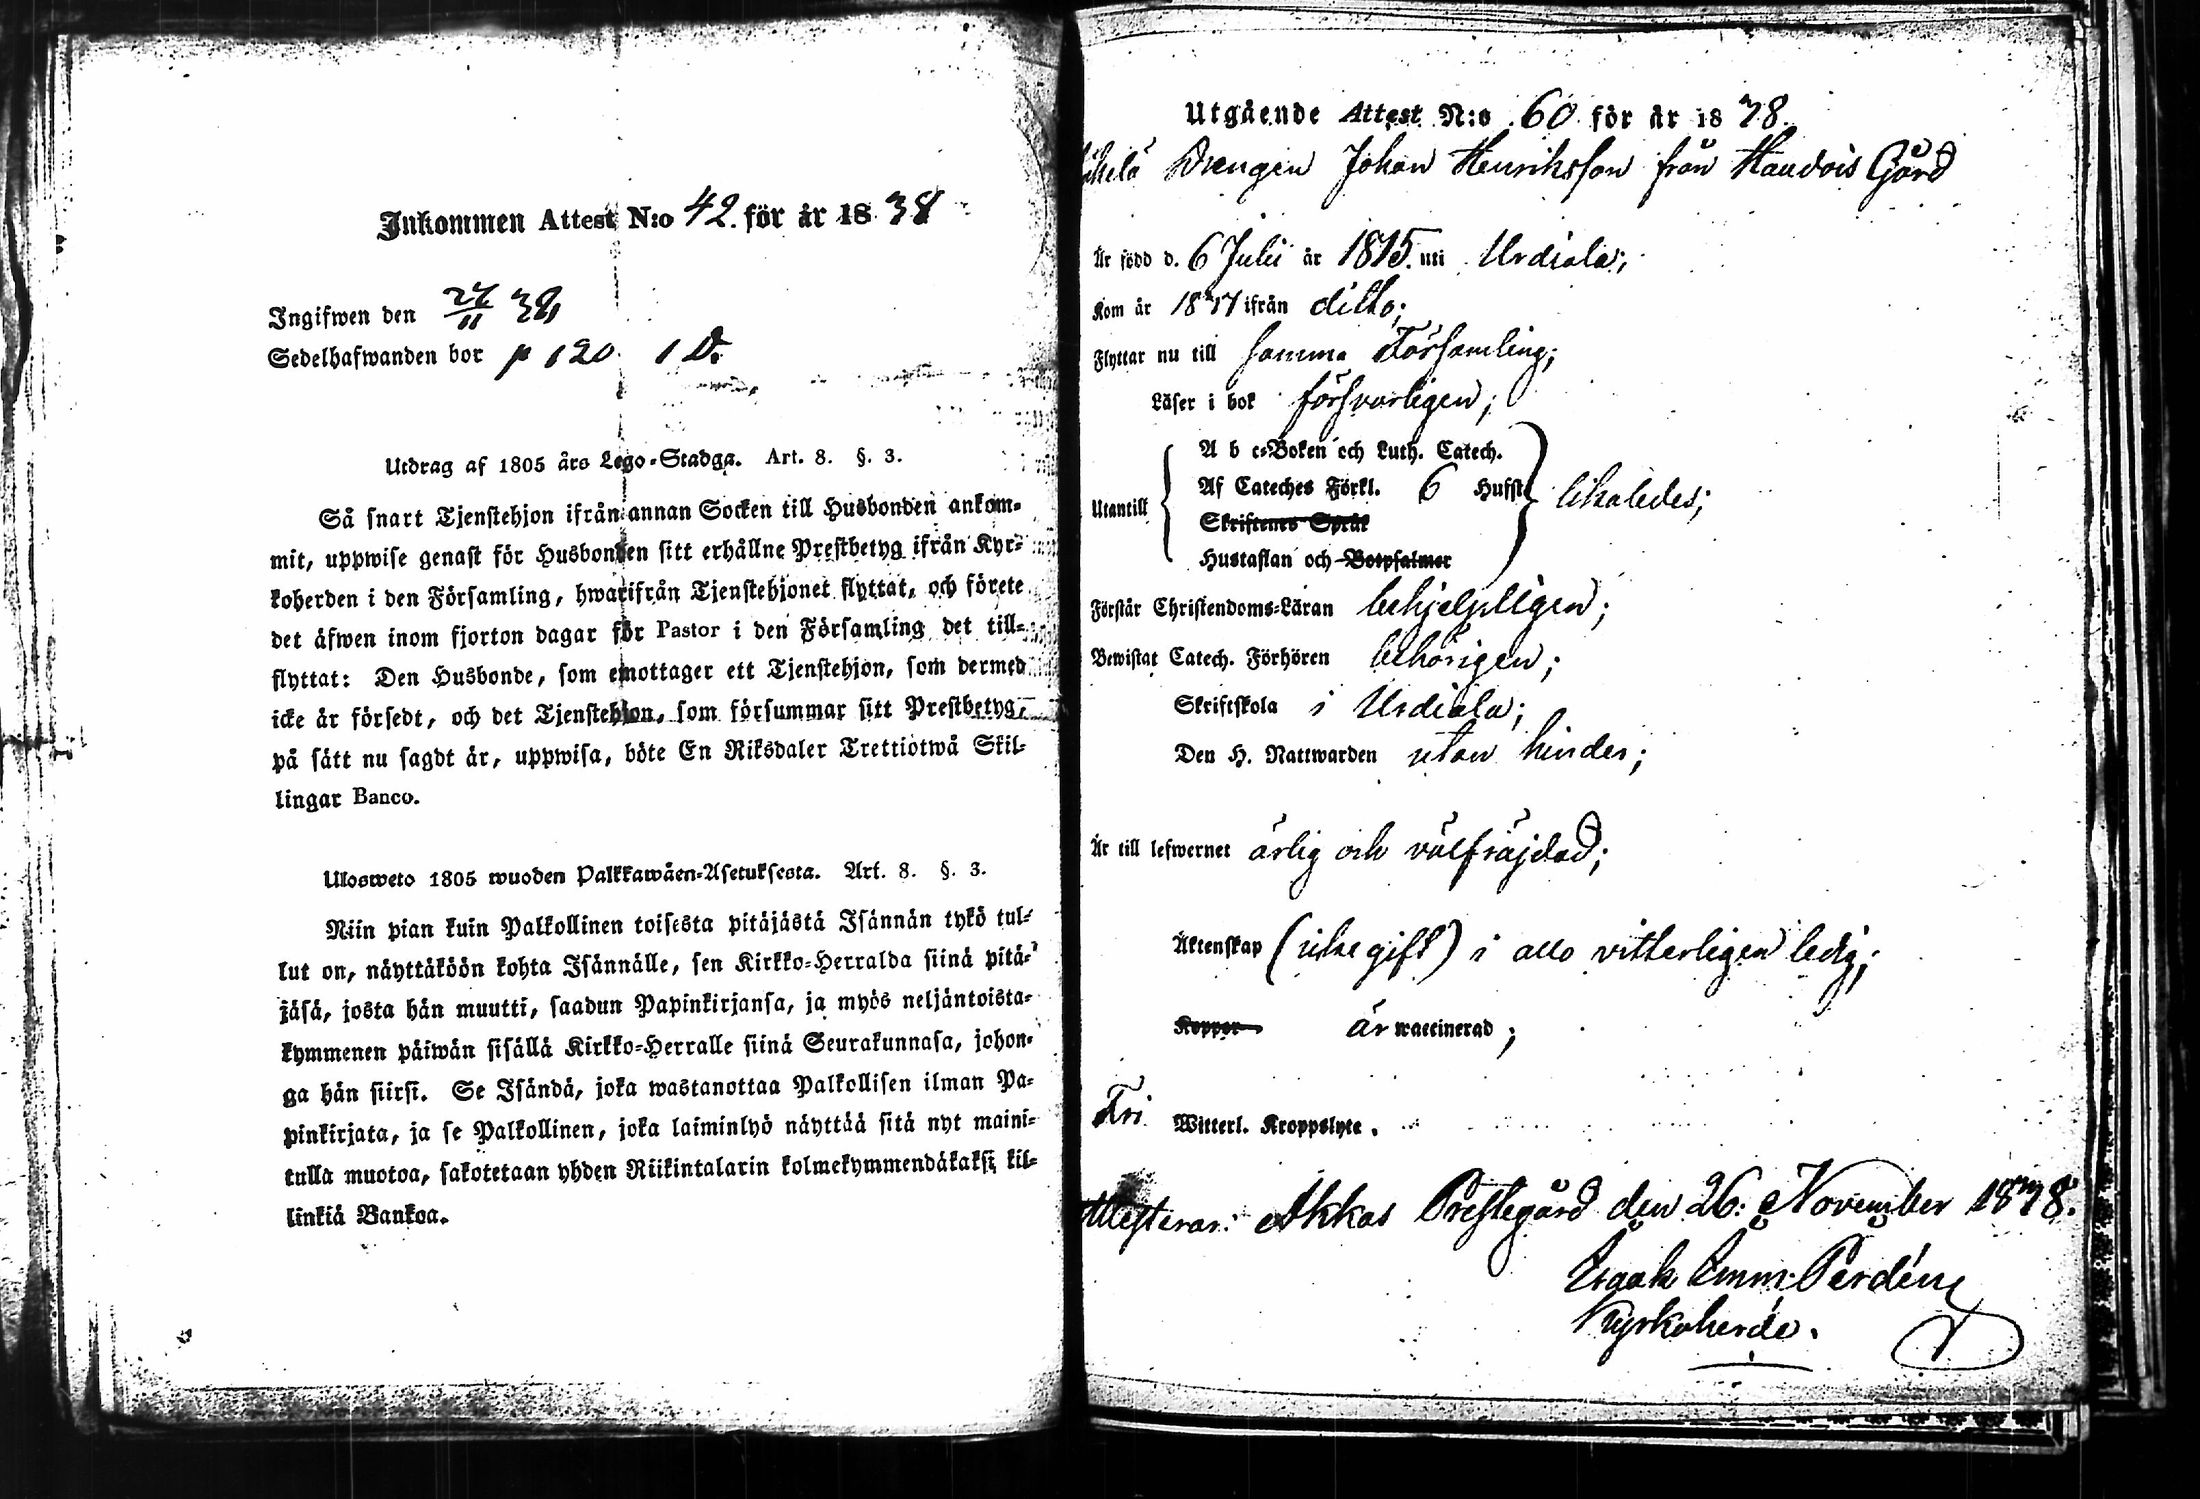 Inkommen Attest N:o 42. för år 1838
Ingifwen den 27/11 38
Sedelhafwanden bor p 120. 1 D.
Utdrag af 1805 års Lego-Stadga. Art. 8. §. 3.
Så snart Tjenstehjon ifrån annan Socken till Husbonden ankom-
mit, uppwise genast för Husbonden sitt erhållne Prestbetyg ifrån Kyr-
koherden i den Församling, hwarifrån Tjenstehjonet flyttat, och förete
det äfwen inom fjorton dagar för Pastor i den Församling det till-
flyttat: Den Husbonde, som emottager ett Tjenstehjon, som dermed
icke är försedt, och det Tjenstehjon, som försummar sitt Prestbetyg,
på sätt nu sagdt är, uppwisa, böte En Riksdaler Trettiotwå Skil-
lingar Banco.
Ulosweto 1805 wuoden Palkkawäen-Asetuksesta. Art. 8. §. 3.
Niin pian kuin Palkollinen toisesta pitäjästä Isännän tykö tul-
lut on, näyttäköön kohta Isännälle, sen Kirkko-Herralda siinä pitä-
jäsä, josta hän muutti, saadun Papinkirjansa, ja myös neljäntoista-
kymmenen päiwän sisällä Kirkko-Herralle siinä Seurakunnasa, johon-
ga hän siirsi. Se Isändä, joka wastanottaa Palkollisen ilman Pa-
pinkirjata, ja se Palkollinen, joka laiminlyö näyttää sitä nyt maini-
tulla muotoa, sakotetaan yhden Riikintalarin kolmekymmendäkaksi kil-
linkiä Bankoa.
Utgående Attest N:o 60 för år 1838.
Drengen Johan Henriksson från Haudois Gård
Är född d. 6 Julii år 1815. uti Urdiala;
Kom år 1837 ifrån ditto;
Flyttar nu till samma Församling;
Läser i bok försvarligen;
A b c-Boken och Luth. Catech.
Af Cateches Förkl. 6 Hufst.
Utantill likaledes;
Skriftenes Språk
Hustaflan och Botpsalmer
Förstår Christendoms-Läran behjelpligen;
Bewistat Catech. Förhören behörigen;
Skriftskola i Urdiala;
Den H. Nattwarden utan hinder;
Är till lefwernet ärlig och välfräjdad;
Äktenskap (icke gift) i allo vitterligen ledig;
Koppor är waccinerad;
Fri Witterl. Kroppslyte.
Attesterar: Akkas Prestegård den 26: November 1838.
Isaak Emm: Perdén
Kyrkoherde.